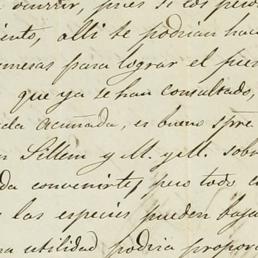 ocurrir, pues si los pesos
iento, alli te podrian hac
omesas para lograr el
que ya se han consultado,
da Acuñada, es bueno
n Sillem y M. y M. sobr
da convenirte, pero todo
las especies pueden baja
na utilidad podria propor